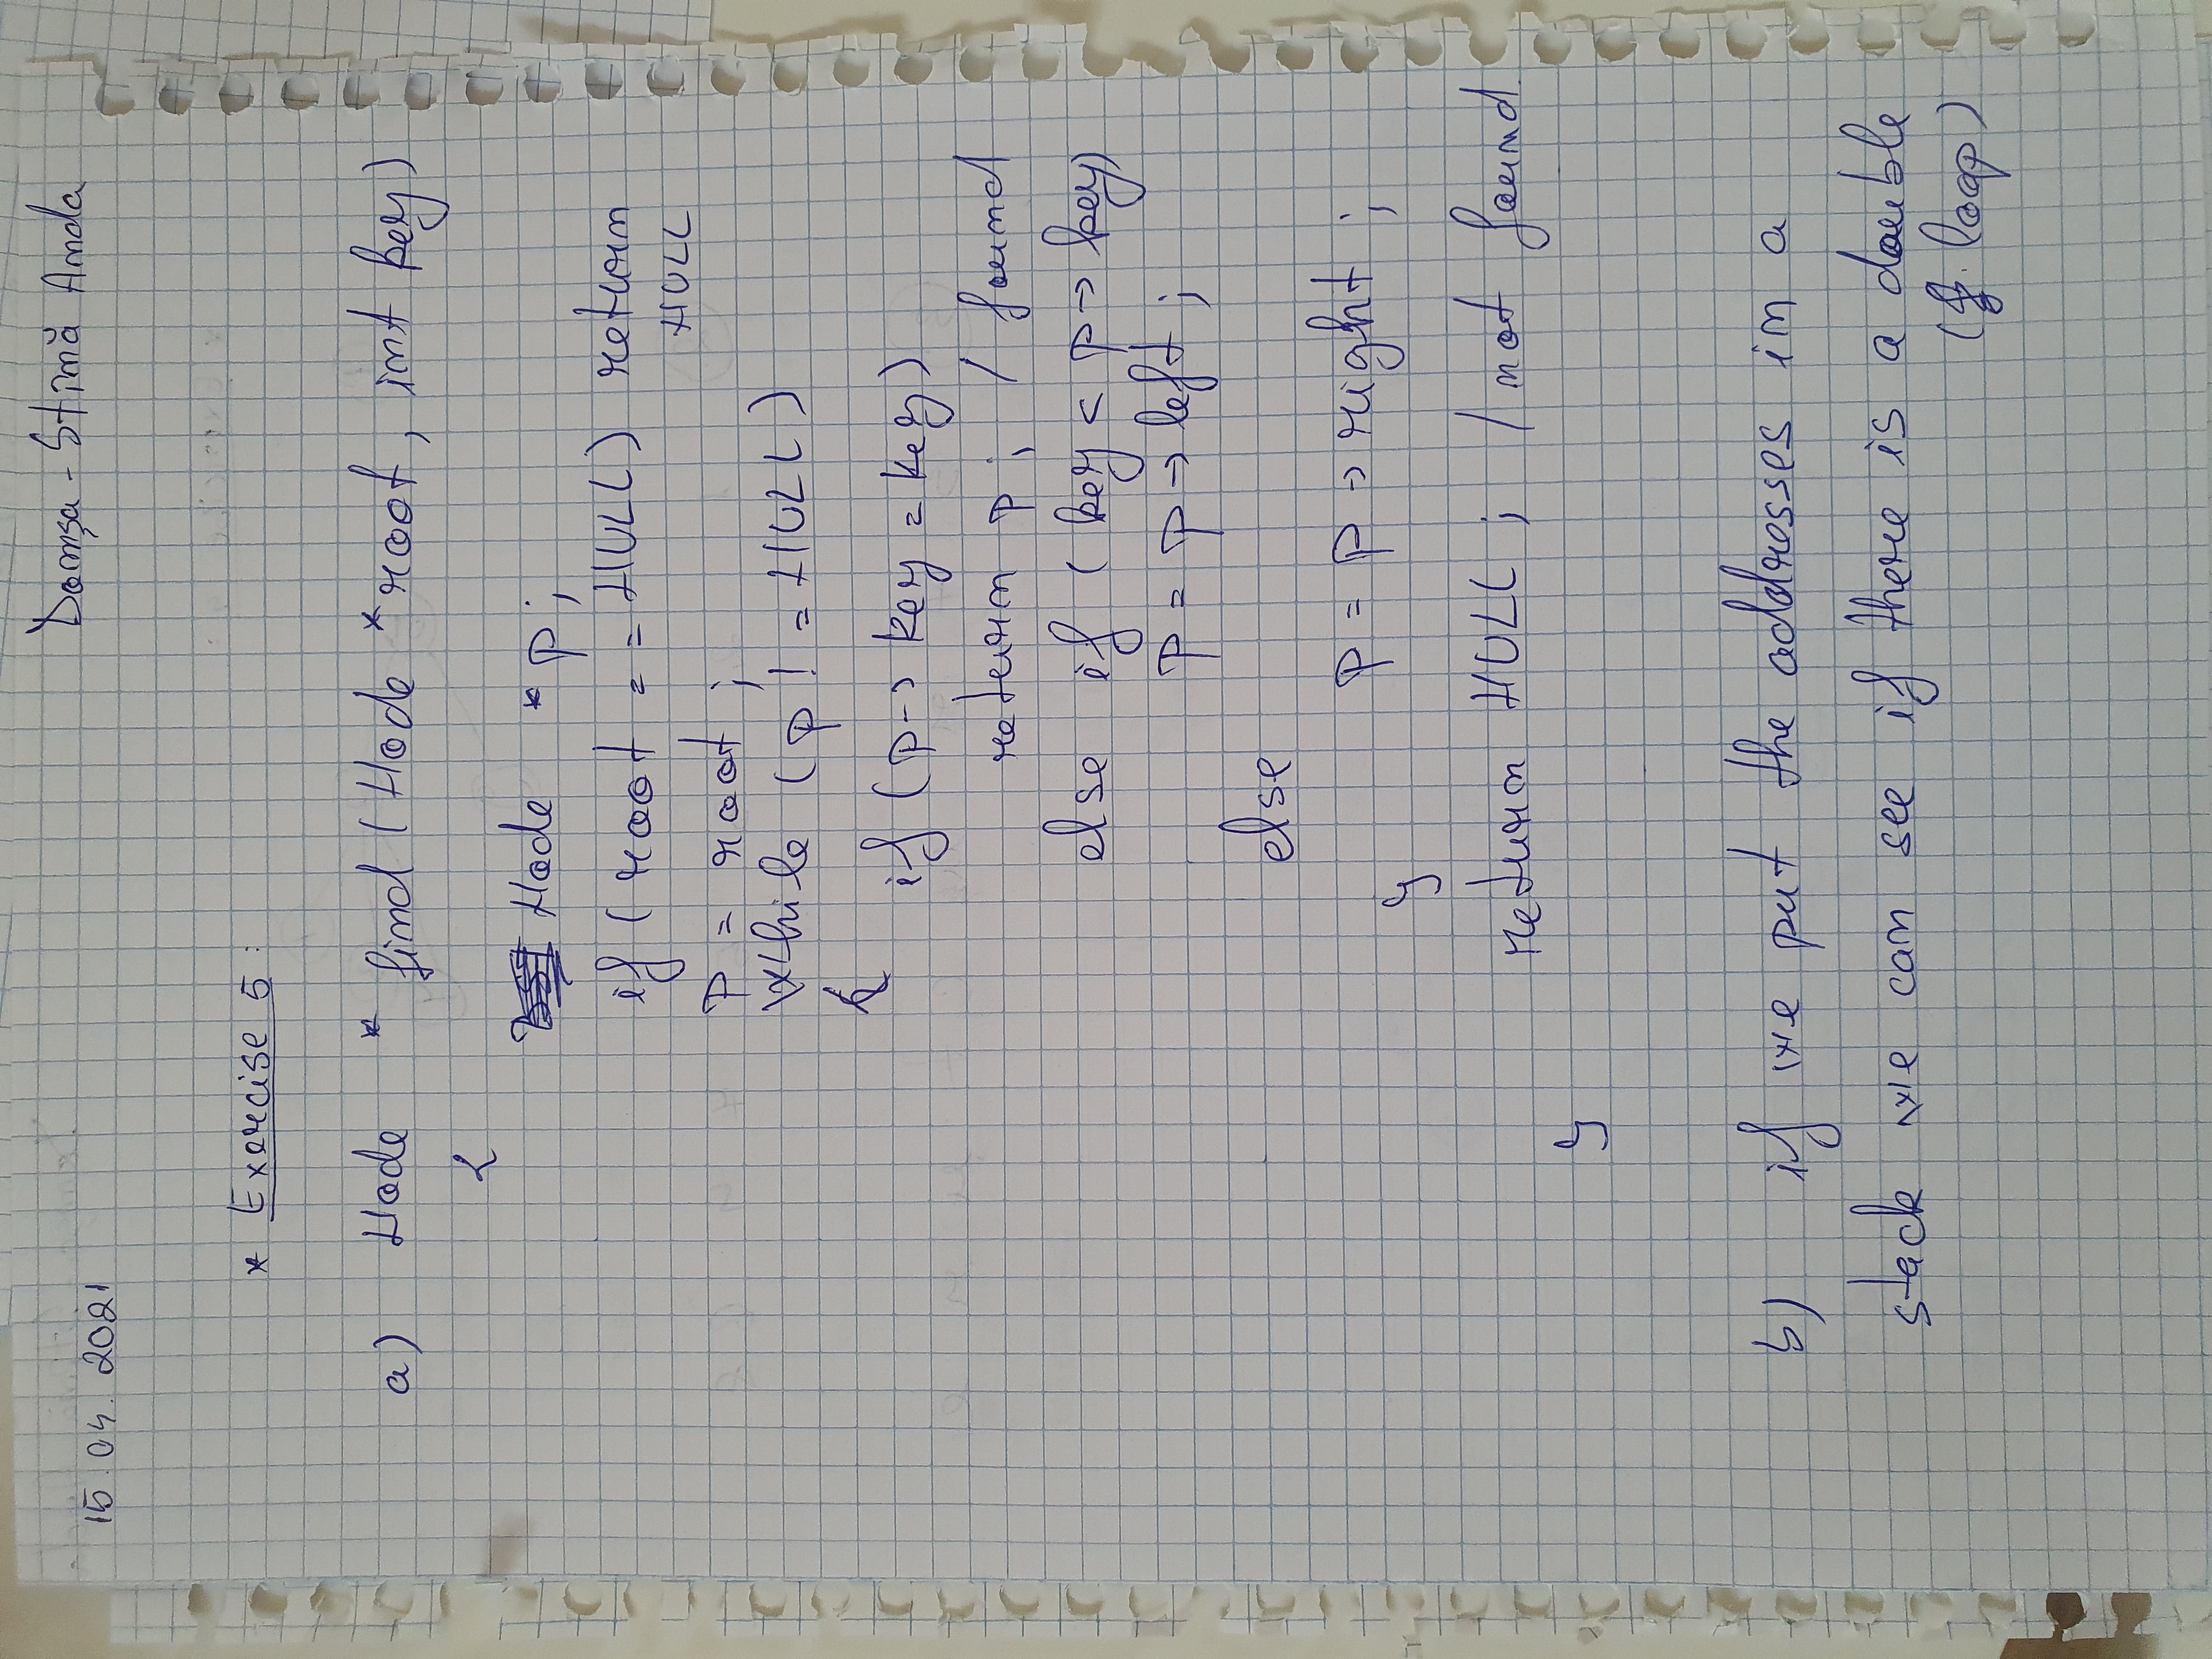 Domșa - Stînă Anda
15.04.2021
* Exercise 5:
a) Node * find (Node * root, int key)
{
Node * p;
if (root == NULL) return
NULL
p = root;
while (p != NULL)
{
if (p -> key = key)
return p; / found
else if (key < p -> key)
p = p -> left;
else
p = p -> right;
}
return NULL; / not found
}
b) if we put the addresses in a
stack we can see if there is a double
(f. loop)